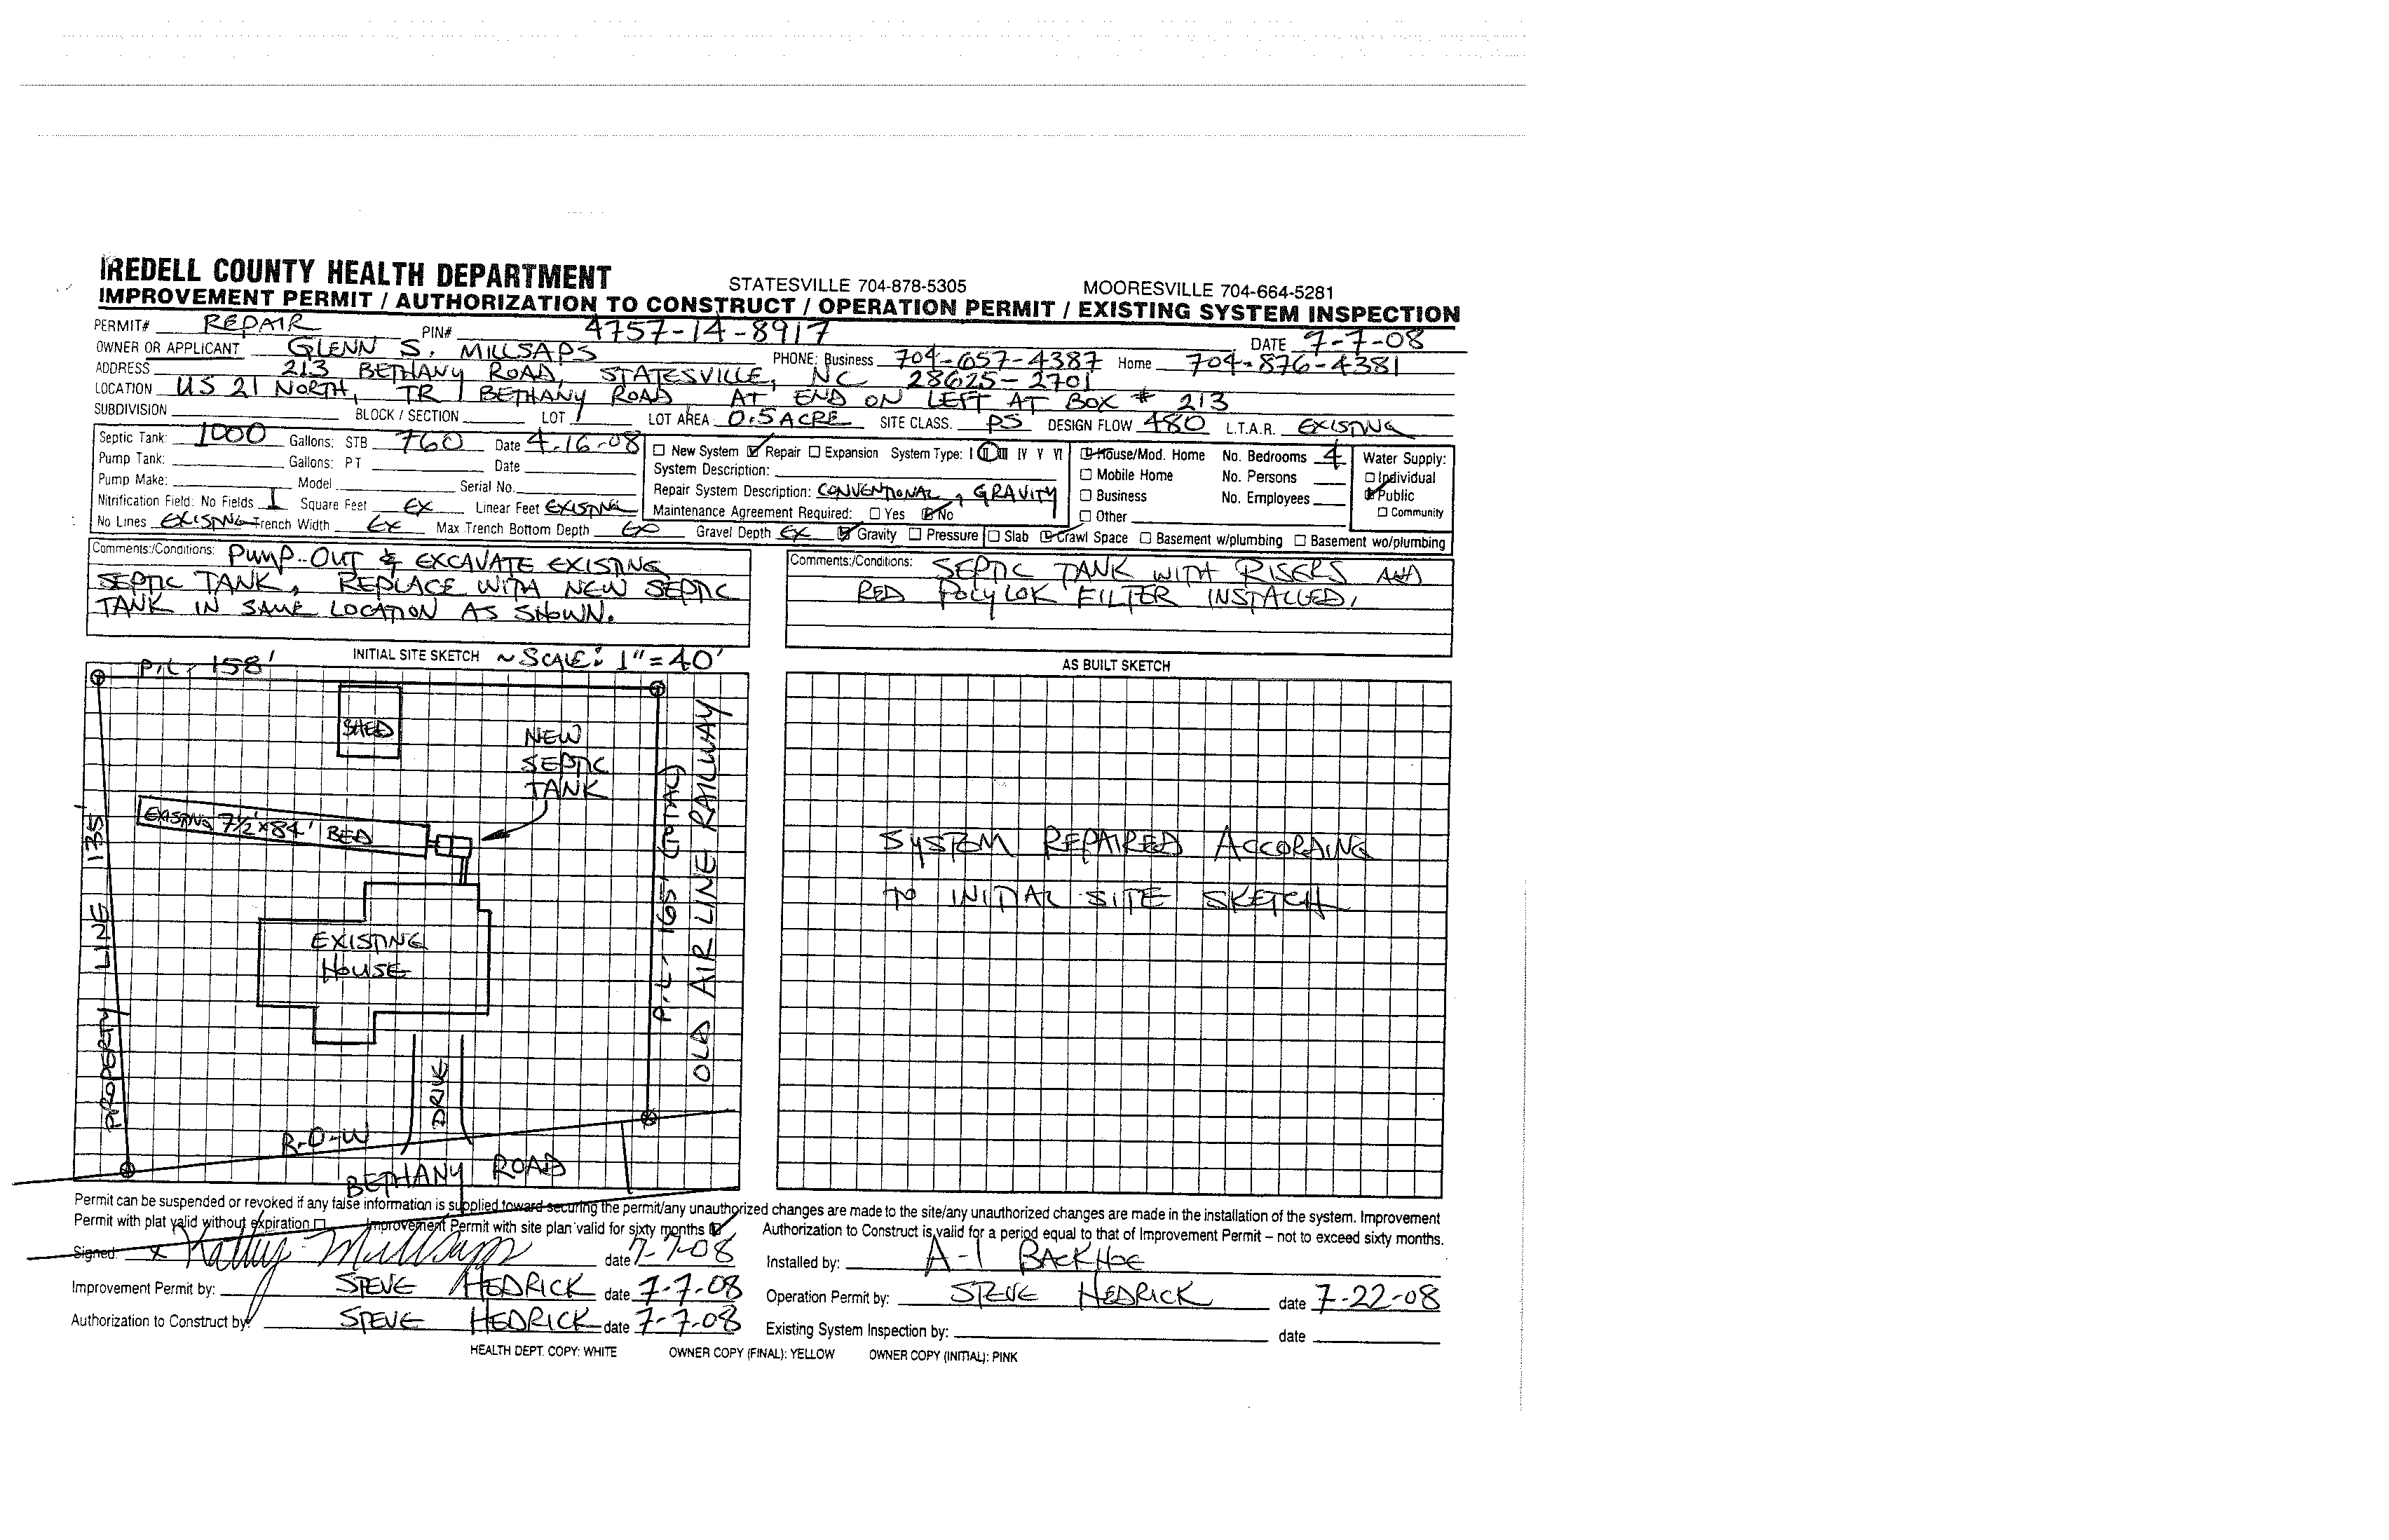 IREDELL COUNTY HEALTH DEPARTMENT STATESVILLE 704-878-5305 MOORESVILLE 704-664-5281
IMPROVEMENT PERMIT / AUTHORIZATION TO CONSTRUCT / OPERATION PERMIT / EXISTING SYSTEM INSPECTION
PERMIT# REPAIR PIN# 4757-14-8917 DATE 7-7-08
OWNER OR APPLICANT GLENN S. MILLSAPS PHONE: Business 704-657-4387 Home 704-876-4381
ADDRESS 213 BETHANY ROAD, STATESVILLE, NC 28625-2701
LOCATION US 21 NORTH, TR BETHANY ROAD AT END ON LEFT AT BOX # 213
SUBDIVISION BLOCK / SECTION LOT 1 LOT AREA 0.5 ACRE SITE CLASS. PS DESIGN FLOW 480 L.T.A.R. EXISTING
Septic Tank: 1000 Gallons: STB 760 Date 4-16-08
Pump Tank: Gallons: PT Date
Pump Make: Model Serial No.
Nitrification Field: No Fields 1 Square Feet EX Linear Feet EXISTING
No Lines EXISTING Trench Width EX Max Trench Bottom Depth EX Gravel Depth EX Gravity Pressure Slab Crawl Space Basement w/plumbing Basement wo/plumbing
New System Repair Expansion System Type: I II III IV V VI
System Description:
Repair System Description: CONVENTIONAL, GRAVITY
Maintenance Agreement Required: Yes No
House/Mod. Home No. Bedrooms 4
Mobile Home No. Persons
Business No. Employees
Other
Water Supply:
Individual
Public
Community
Comments:/Conditions: PUMP-OUT & EXCAVATE EXISTING
SEPTIC TANK, REPLACE WITH NEW SEPTIC
TANK IN SAME LOCATION AS SHOWN.
Comments:/Conditions: SEPTIC TANK WITH RISERS AND
RED POLYLOK FILTER INSTALLED.
INITIAL SITE SKETCH ~ SCALE: 1"=40'
P.L. 158'
SHED
NEW
SEPTIC
TANK
EXISTING 7½'x84' BED
EXISTING
HOUSE
PROPERTY LINE 135'
P.L. 165' (TOTAL)
OLD AIR LINE RAILWAY
DRIVE
R-O-W
BETHANY ROAD
AS BUILT SKETCH
SYSTEM REPAIRED ACCORDING
TO INITIAL SITE SKETCH
Permit can be suspended or revoked if any false information is supplied toward securing the permit/any unauthorized changes are made to the site/any unauthorized changes are made in the installation of the system. Improvement
Permit with plat valid without expiration Improvement Permit with site plan valid for sixty months Authorization to Construct is valid for a period equal to that of Improvement Permit – not to exceed sixty months.
Signed: x Kathy Millsaps date 7-7-08 Installed by: A-1 BACKHOE
Improvement Permit by: STEVE HEDRICK date 7-7-08 Operation Permit by: STEVE HEDRICK date 7-22-08
Authorization to Construct by: STEVE HEDRICK date 7-7-08 Existing System Inspection by: date
HEALTH DEPT. COPY: WHITE OWNER COPY (FINAL): YELLOW OWNER COPY (INITIAL): PINK